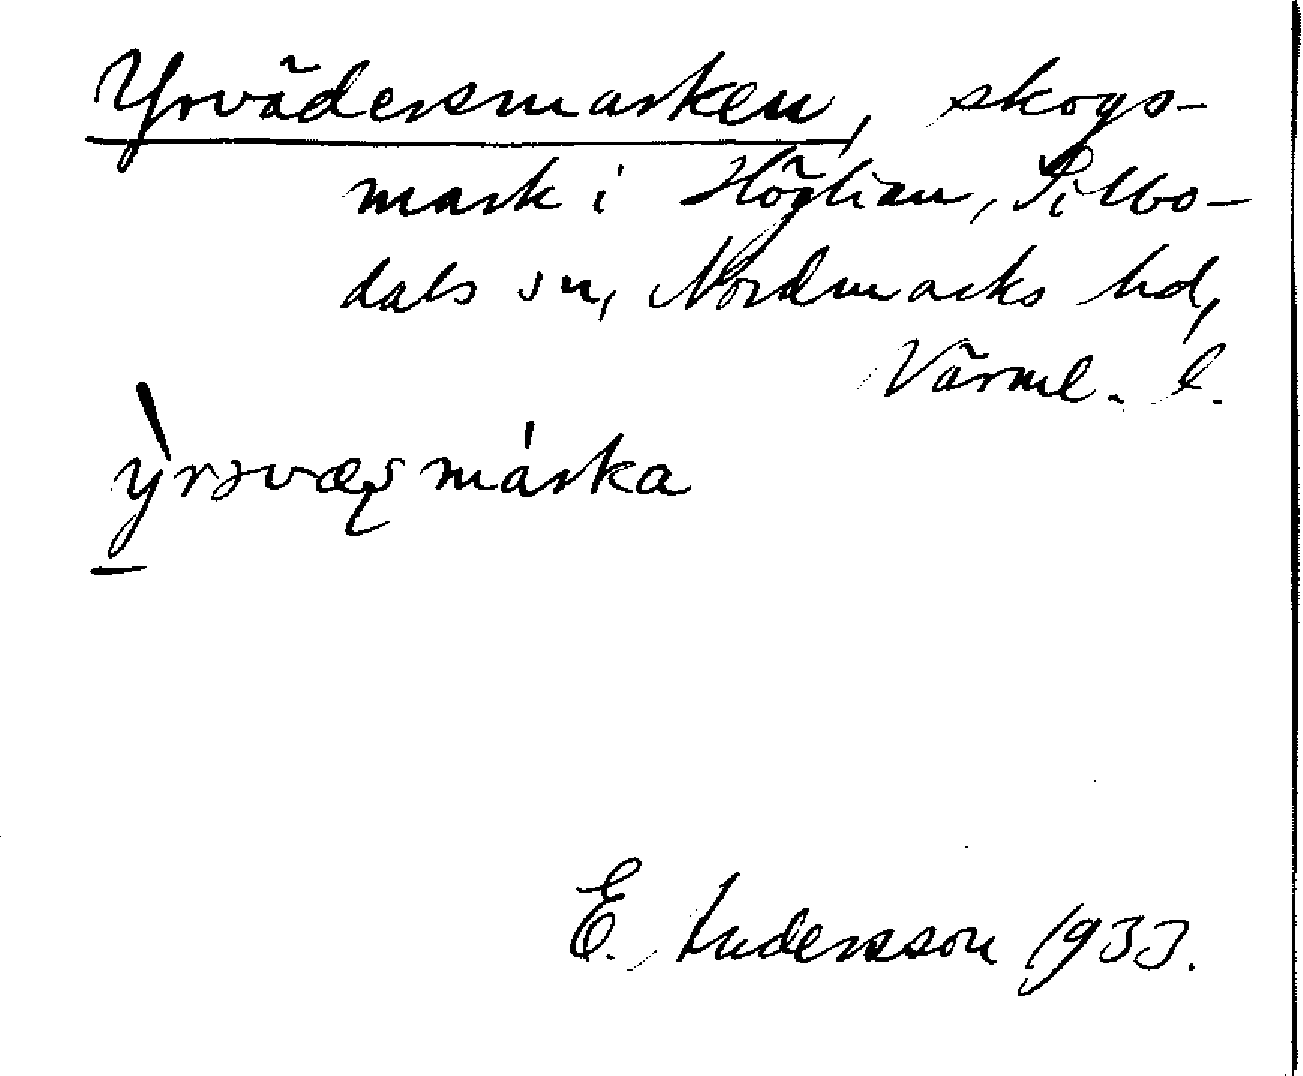 Yrvädersmarken, skogs-
mark i Höglian, Silbo-
dals sn, Nordmarks hd,
Värml. l.
ỳrəvæʂmárka
E. Andersson 1933.